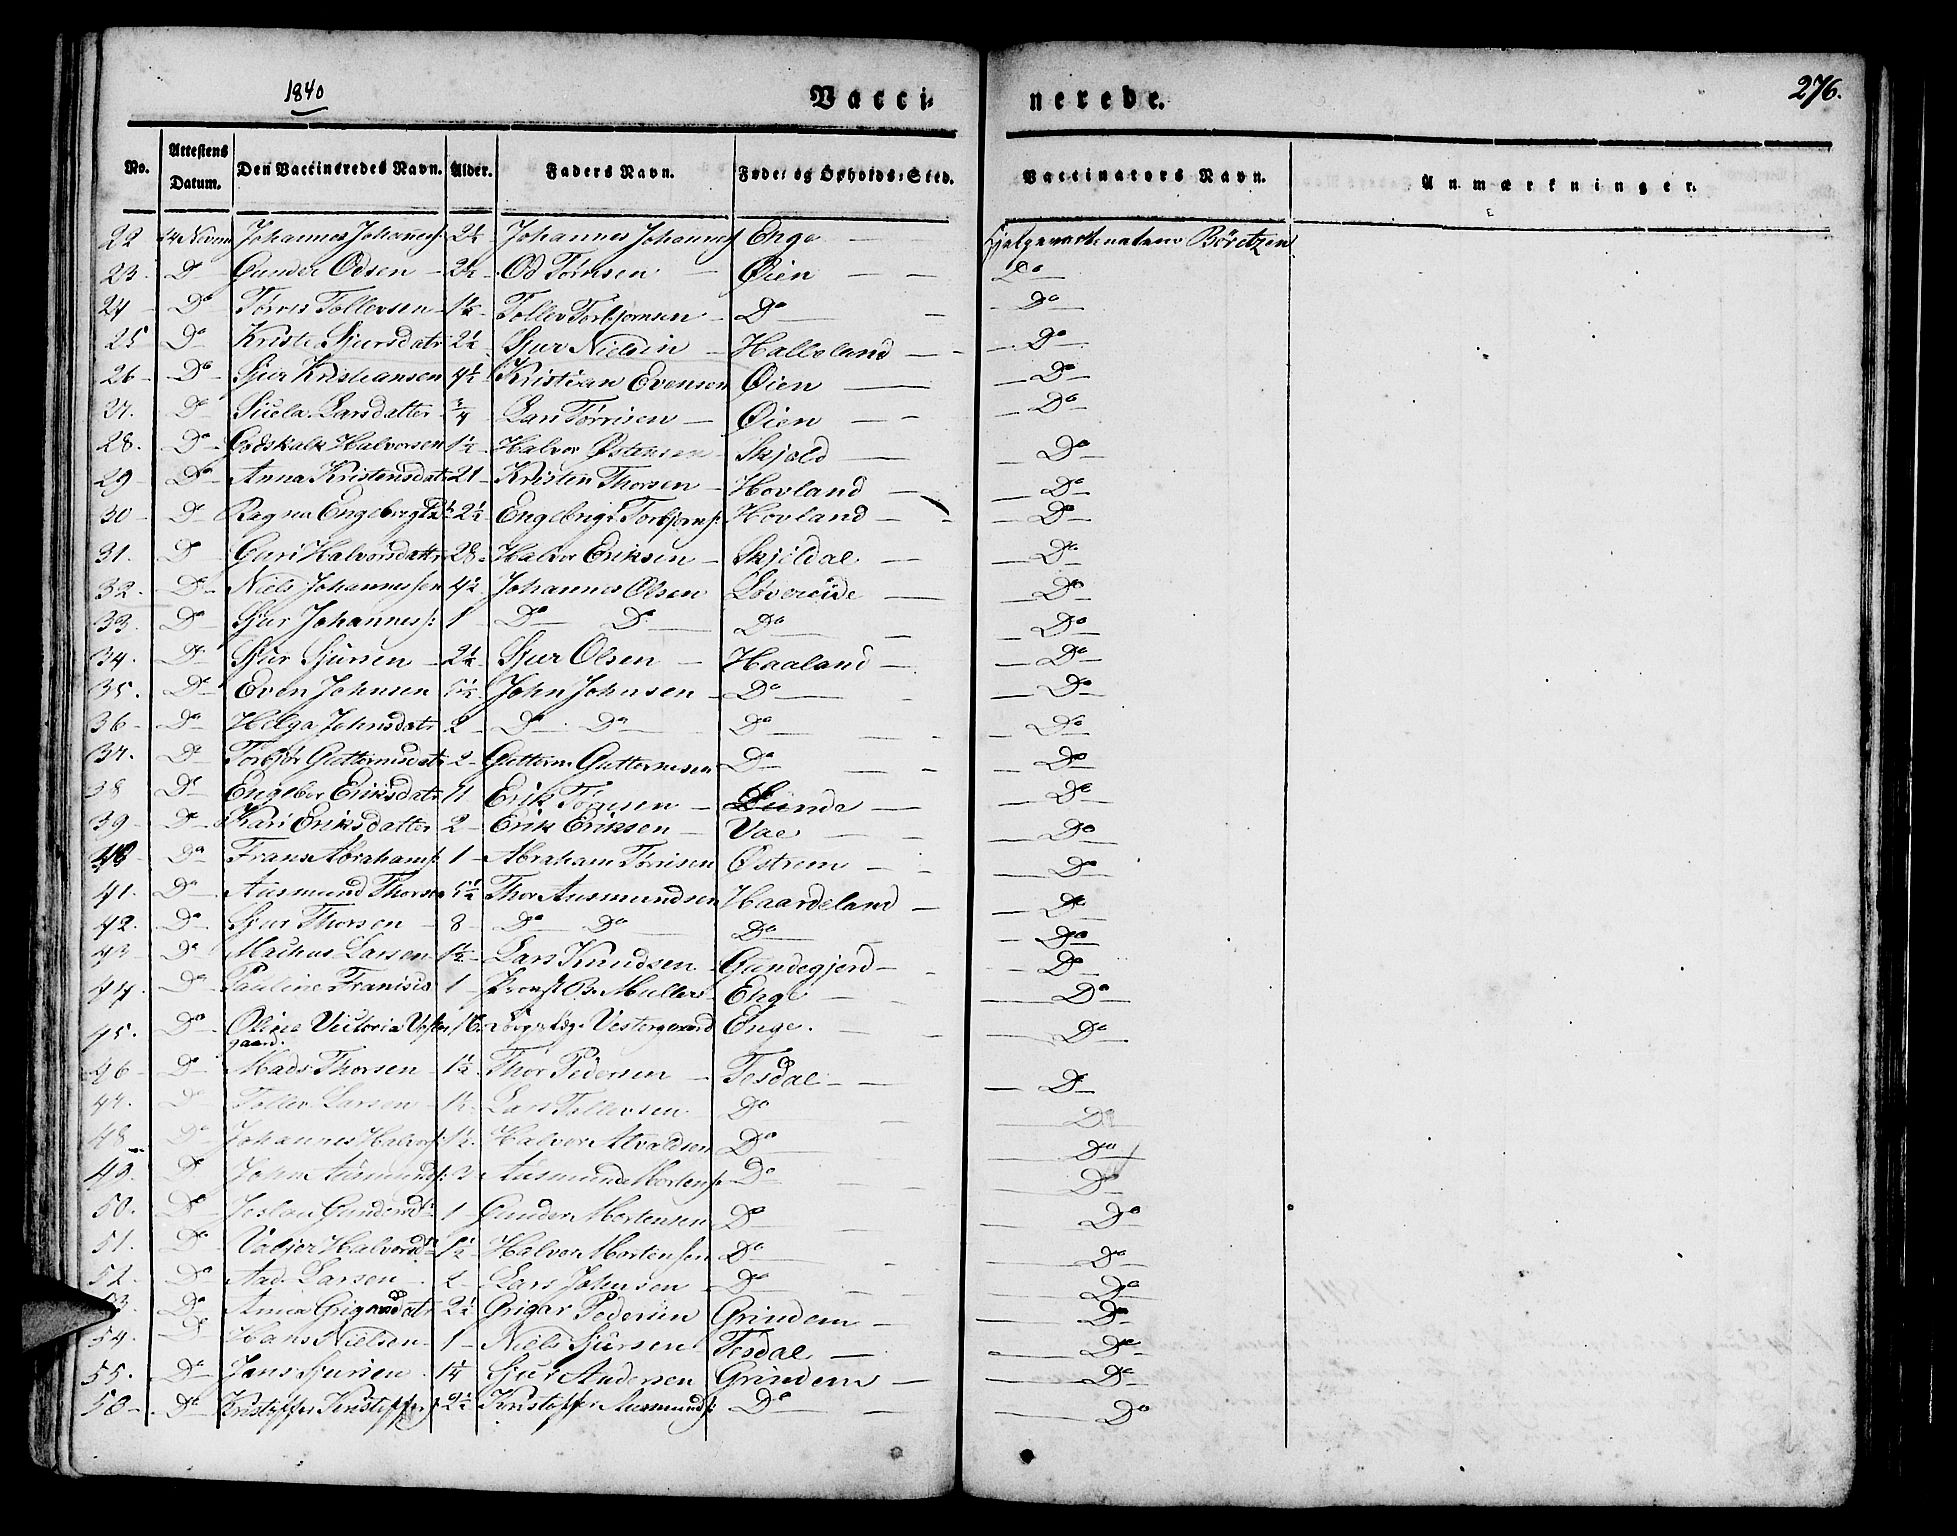 1840
Vacci- nerede.
276.
No. Attestens Datum. Den Vaccineredes Navn. Alder. Faders Navn. Føde- og Opholds-Sted. Vaccinators Navn. Anmærkninger.
22 24 Novem Johannes Johanness 2½ Johannes Johanness Enge Børetzen
23. Do Gunder Odsen 2½ Od Tørrisen Øien Do
24 Do Tørris Tollevsen 1½ Tollev Torbjørnsen Do Do
25 Do Kristi Sjursdatr 2½ Sjur Nielsen Halleland Do
26 Do Sjur Kristiansen 4½ Kristian Evensen Øien Do
27. Do Siëla Larsdatter ¾ Lars Tørrisen Øien Do
28. Do Godskalk Halvorsen 1½ Halvor Østensen Skjold Do
29 Do Anna Kristensdatr 21 Kristen Thorsen Hovland Do
30 Do Ragna Engebregtsd 2½ Engebregt Torbjørns: Hovland Do
31. Do Guri Halvorsdattr 28 Halvor Eriksen Skjoldal Do
32. Do Niels Johannessen 4½ Johannes Olsen Løvereide Do
33. Do Sjur Johannes: 1 Do Do Do Do
34. Do Sjur Sjursen 2½ Sjur Olsen Haaland Do
35. Do Even Johnsen 5½ John Johnsen Do Do
36 Do Helga Johnsdatr 2 Do Do Do Do
37. Do Torbjør Guttormsdatr 2 Guttorm Guttormsen Do Do
38 Do Engebor Eriksdatr 11 Erik Tørrisen Lunde Do
39 Do Kari Eriksdatter 2 Erik Eriksen Vae Do
40 Do Frans Abrahams: 1 Abraham Tørrisen Østrem Do
41. Do Aasmund Thorsen 5½ Thor Aasmundsen Haardeland Do
42. Do Sjur Thorsen 8 Do Do Do Do
43 Do Markus Larsen 1½ Lars Knudsen Gundegjerd Do
44. Do Pauline Francisis 1 Provst B. Muller Enge Do
45. Do Oline Victoria Vestergaard Vestergaard Enge. Do
46 Do Mads Thorsen 1½ Thor Pedersen Tesdal Do
47. Do Tollev Larsen 1½ Lars Tollevsen Do Do
48 Do Johannes Halvors: 1½ Halvor Atvaldsen Do Do
49. Do John Aasmunds: 3 Aasmund Mortens: Do Do
50. Do Joslau Gundersd 1 Gunder Mortensen Do Do
51. Do Valjer Halvorsd 1½ Halvor Mortensen Do Do
52. Do Aad Larsen 2 Lars Johnsen Do Do
53. Do Anna Grigarsdatr 2½ Grigar Pedersen Grindem Do
54. Do Hans Nielsen 1 Niels Sjursen Tesdal Do
55. Do Jans Sjursen 14 Sjur Andersen Grindem Do
56 Do Kristoffer Kristoffers: 2½ Kristoffer Aasmunds: Do Do